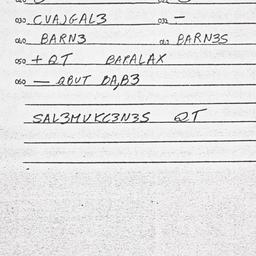 030 CVA)GAL3 032 —
040 BARN3 041 BARN3S
050 + QT BAPALAX
060 — QBUT DA,B3
SAL3MVKC3N3S QT